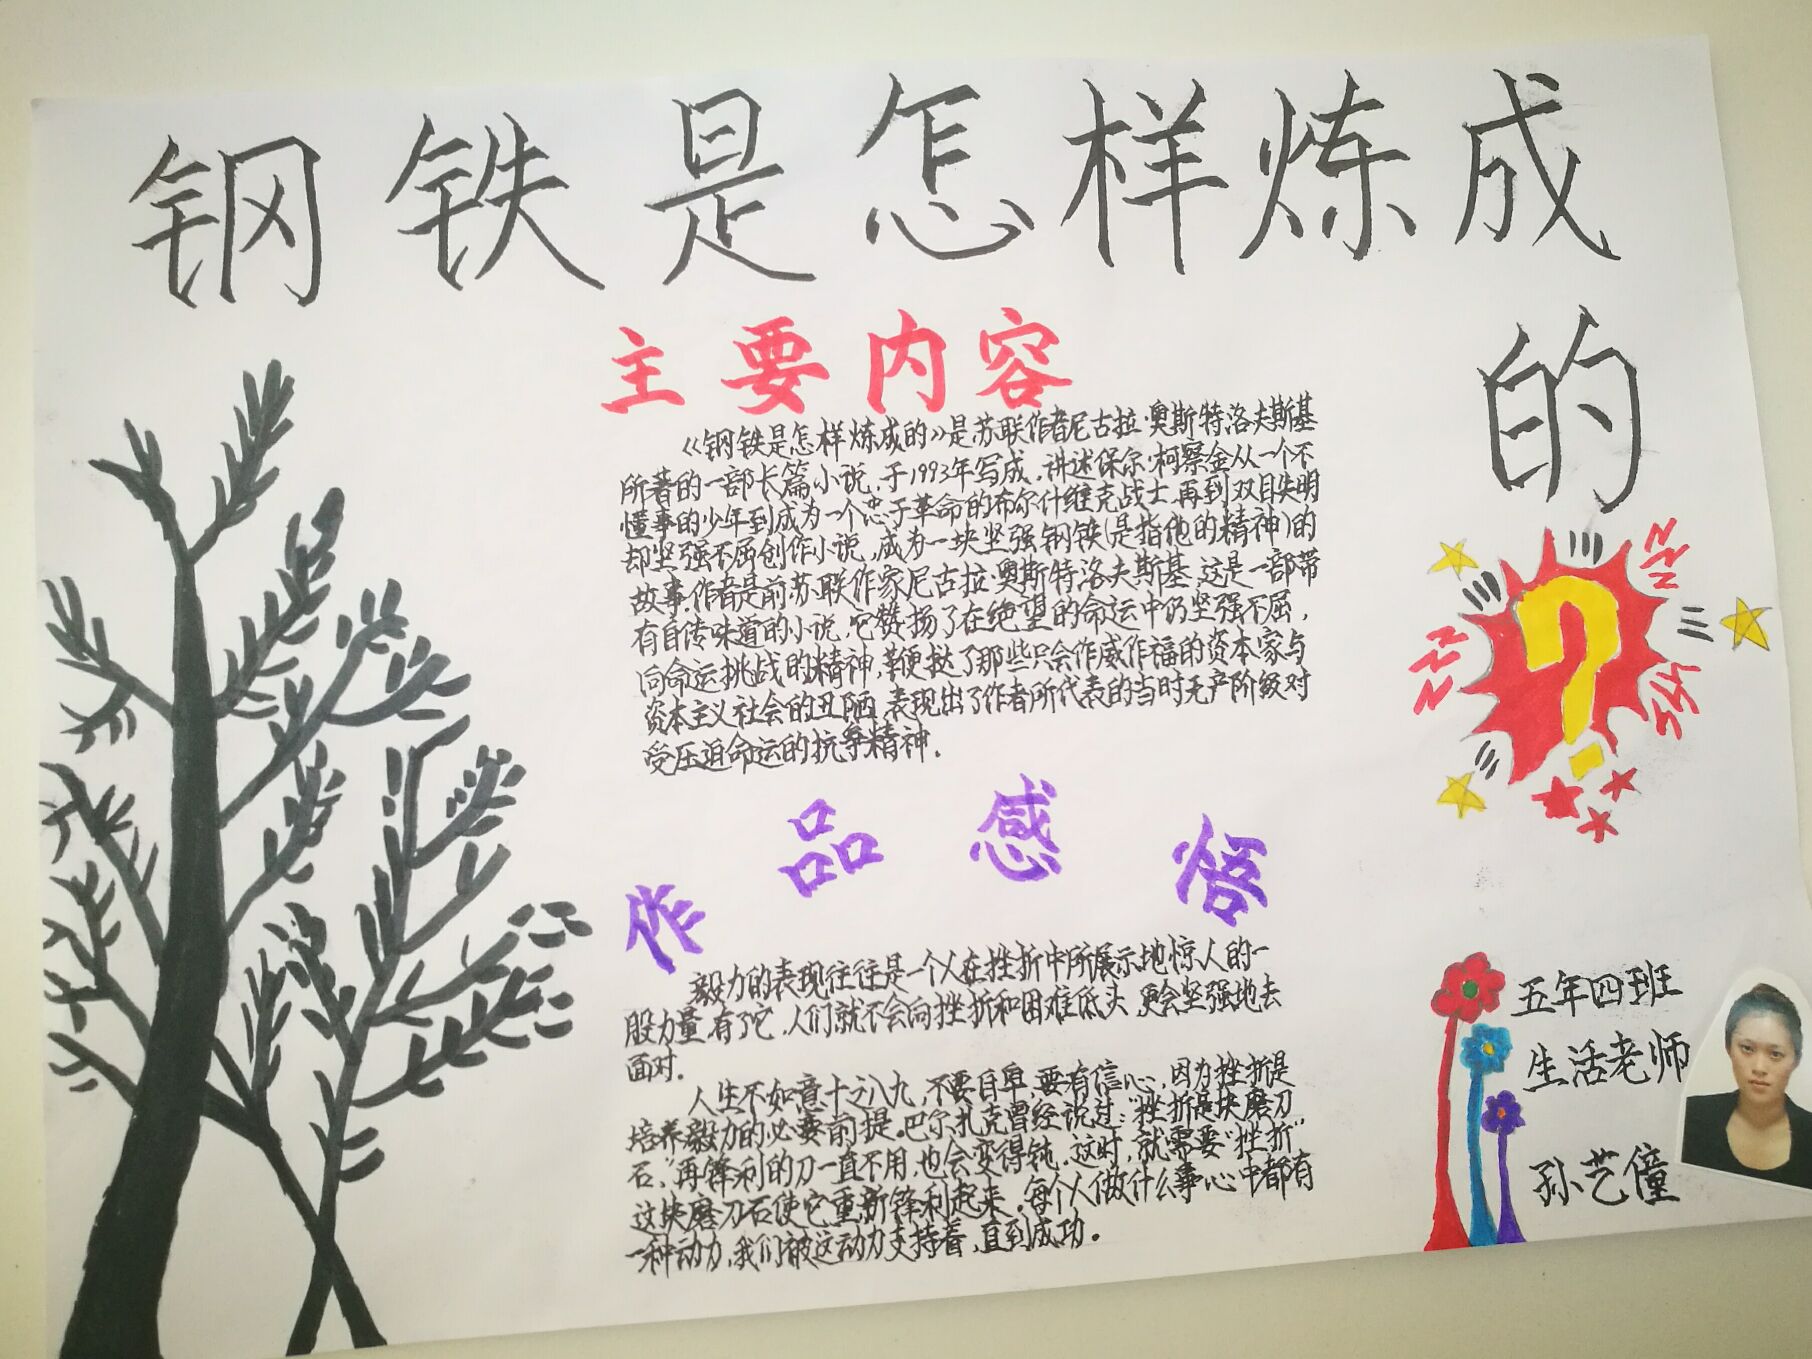 钢铁是怎样炼成
的
主要内容
《钢铁是怎样炼成的》是苏联作者尼古拉·奥斯特洛夫斯基
所著的一部长篇小说,于1993年写成,讲述保尔·柯察金从一个不
懂事的少年到成为一个忠于革命的布尔什维克战士,再到双目失明
却坚强不屈创作小说,成为一块坚强钢铁(是指他的精神)的
故事.作者是前苏联作家尼古拉·奥斯特洛夫斯基.这是一部带
有自传味道的小说,它赞扬了在绝望的命运中仍坚强不屈,
向命运挑战的精神,鞭挞了那些只会作威作福的资本家与
资本主义社会的丑陋,表现出了作者所代表的当时无产阶级对
受压迫命运的抗争精神.
作品感悟
毅力的表现往往是一个人在挫折中所展示地惊人的一
股力量,有了它,人们就不会向挫折和困难低头,更会坚强地去
面对.
人生不如意十之八九,不要自卑,要有信心,因为挫折是
培养毅力的必要前提.巴尔扎克曾经说过:"挫折是块磨刀
石."再锋利的刀一直不用,也会变得钝.这时,就需要"挫折"
这块磨刀石使它重新锋利起来.每个人做什么事心中都有
一种动力,我们被这动力支持着,直到成功。
五年四班
生活老师
孙艺僮